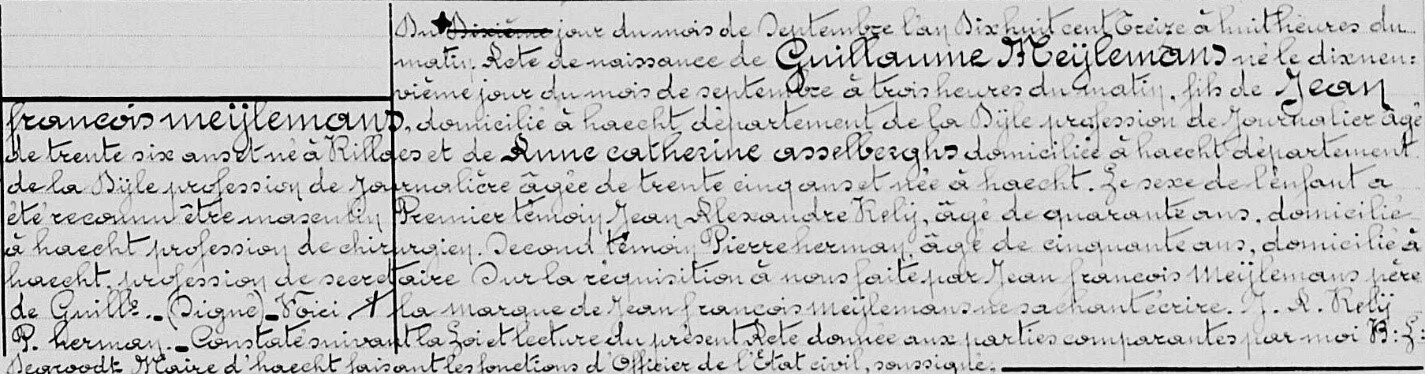 Du ★ Dixième jour du mois de Septembre l'an Dixhuit cent Treize à huit heures du
matin. Acte de naissance de Guillaume Meÿlemans né le dixneu:
vième jour du mois de septembre à trois heures du matin, fils de Jean
françois meÿlemans, domicilié à haecht département de la Dÿle profession de Journalier âgé
de trente six ans et né à Rillaes et de Anne catherine asselberghs domiciliée à haecht département
de la Dÿle profession de Journalière âgée de trente cinq ans et née à haecht. Le sexe de l'enfant a
été reconnu être masculin Premier témoin Jean Alexandre Kelÿ, âgé de quarante ans, domicilié
à haecht profession de chirurgien. Second témoin Pierre herman, âgé de cinquante ans, domicilié à
haecht, profession de secrétaire Sur la réquisition à nous faite par Jean françois Meÿlemans père
de Guill.e - (Signé) - Voici + la marque de Jean françois meÿlemans ne sachant écrire. J. A. Kelÿ
P. herman. - Constaté suivant la Loi et lecture du présent Acte donnée aux parties comparantes par moi B: L.
Degroodt Maire d'haecht faisant les fonctions d'Officier de l'Etat civil, soussigné.